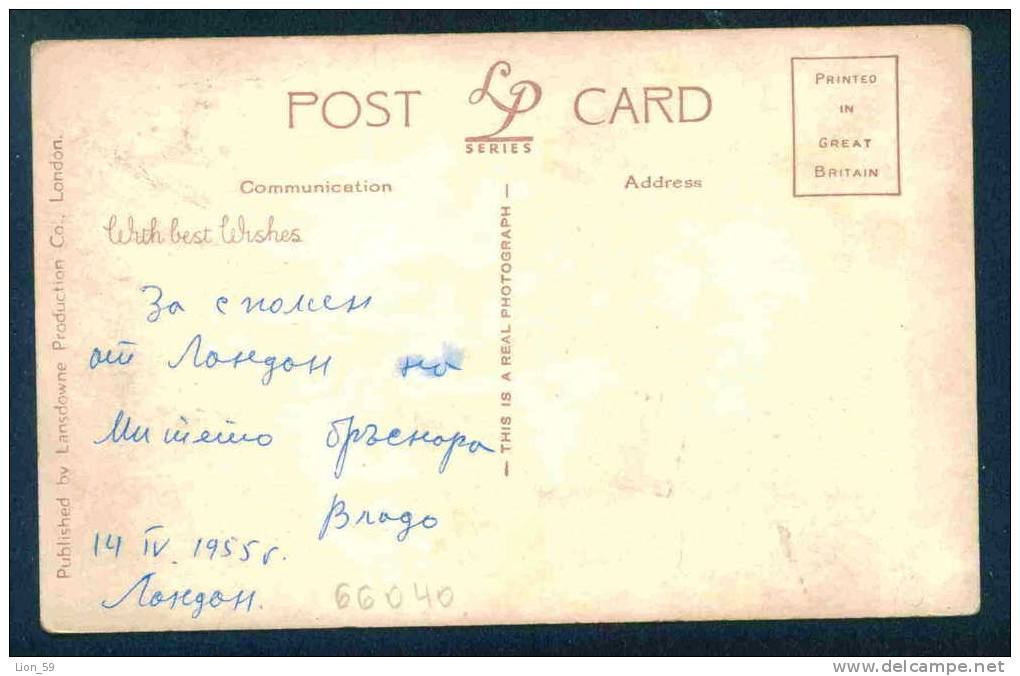 POST LP CARD
SERIES
PRINTED
IN
GREAT
BRITAIN
Communication
Address
With best Wishes
За спомен
от Лондон на
Митето бръснаря
Владо
14 IV. 1955 г.
Лондон.
66040
— THIS IS A REAL PHOTOGRAPH —
Published by Lansdowne Production Co., London.
Lion_59
www.delcampe.net